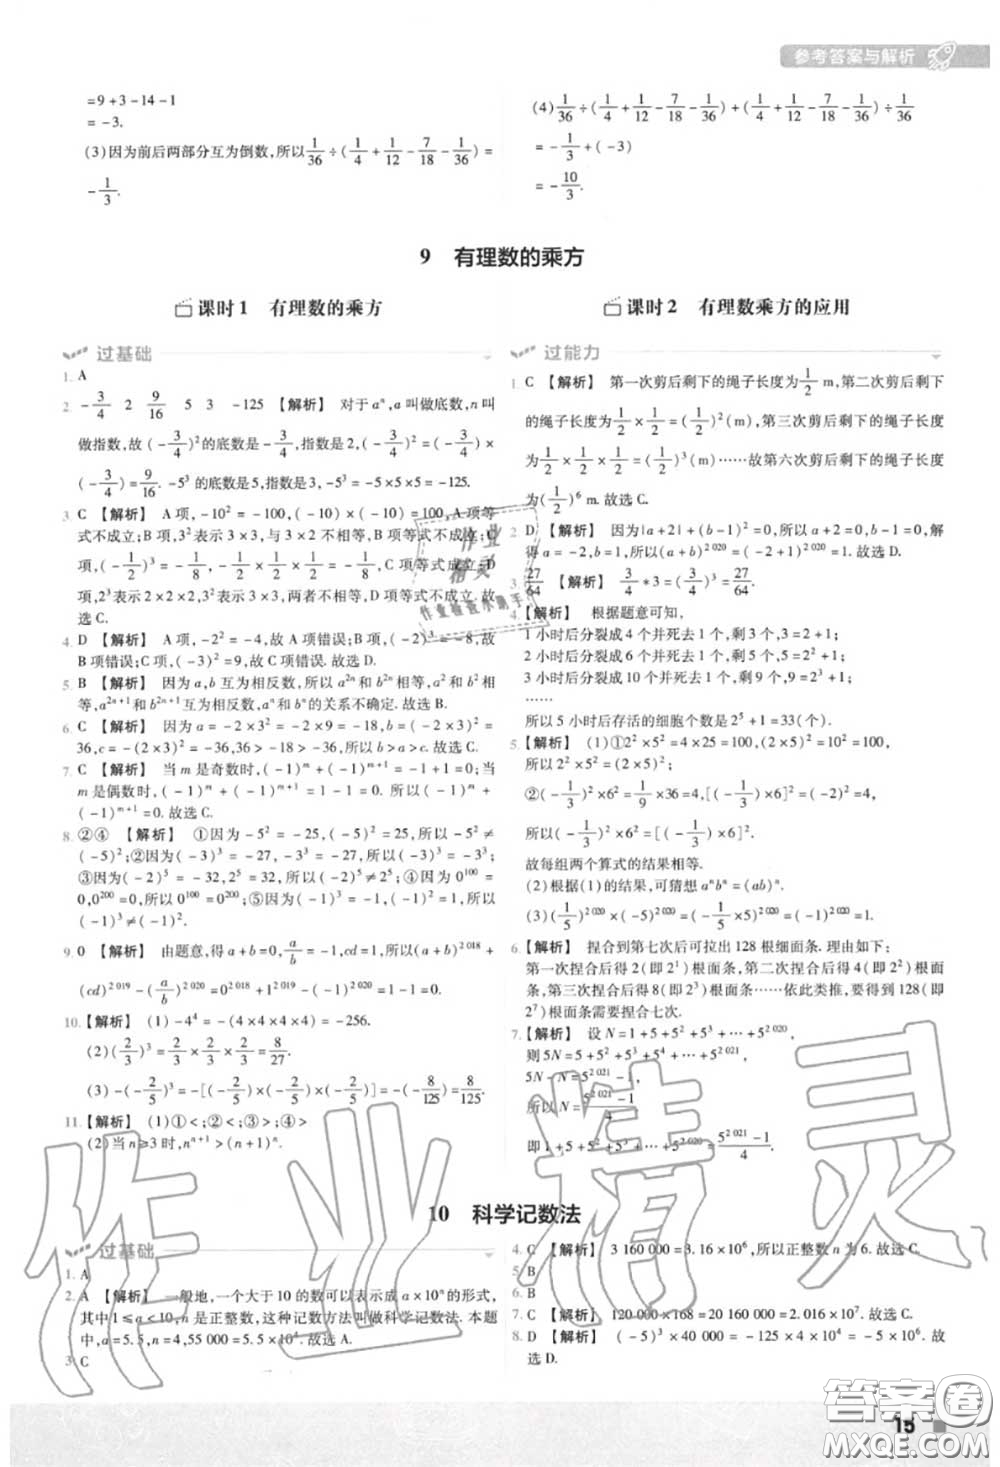 参考答案与解析
=9+3-14-1
=-3.
(3)因为前后两部分互为倒数,所以1/36÷(1/4+1/12-7/18-1/36)=
-1/3.
(4)1/36÷(1/4+1/12-7/18-1/36)+(1/4+1/12-7/18-1/36)÷1/36
=-1/3+(-3)
=-10/3.
9 有理数的乘方
课时1 有理数的乘方
过基础
1. A
2. -3/4 2 9/16 5 3 -125 【解析】 对于aⁿ,a叫做底数,n叫
做指数,故(-3/4)²的底数是-3/4,指数是2,(-3/4)²=(-3/4)×
(-3/4)=9/16. -5³的底数是5,指数是3,-5³=-5×5×5=-125.
3. C 【解析】 A项,-10²=-100,(-10)×(-10)=100,A项等
式不成立;B项,3²表示3×3,与3×2不相等,B项等式不成立;C
项,(-1/2)³=-1/8,-1/2³=-1/8,C项等式成立;D
项,2³表示2×2×2,3²表示3×3,两者不相等,D项等式不成立.故
选C.
4. D 【解析】 A项,-2²=-4,故A项错误;B项,(-2)³=-8,故
B项错误;C项,(-3)²=9,故C项错误;故选D.
5. B 【解析】 因为a,b互为相反数,所以a²ⁿ和b²ⁿ相等,a²和b²相
等,a²ⁿ⁺¹和b²ⁿ⁺¹互为相反数,aⁿ和bⁿ的关系不确定.故选B.
6. C 【解析】 因为a=-2×3²=-2×9=-18,b=(-2×3)²=
36,c=-(2×3)²=-36,36>-18>-36,所以b>a>c.故选C.
7. C 【解析】 当m是奇数时,(-1)ᵐ+(-1)ᵐ⁺¹=-1+1=0;当
m是偶数时,(-1)ᵐ+(-1)ᵐ⁺¹=1-1=0.所以(-1)ᵐ+
(-1)ᵐ⁺¹=0.故选C.
8. ②④ 【解析】 ①因为-5²=-25,(-5)²=25,所以-5²≠
(-5)²;②因为(-3)³=-27,-3³=-27,所以(-3)³=-3³;
③因为(-2)⁵=-32,2⁵=32,所以(-2)⁵≠2⁵;④因为0¹⁰⁰=
0,0²⁰⁰=0,所以0¹⁰⁰=0²⁰⁰;⑤因为(-1)³=-1,(-1)²=1,所以
(-1)³≠(-1)².
9. 0 【解析】 由题意,得a+b=0,a/b=-1,cd=1,所以(a+b)²⁰¹⁸+
(cd)²⁰¹⁹-(a/b)²⁰²⁰=0²⁰¹⁸+1²⁰¹⁹-(-1)²⁰²⁰=1-1=0.
10.【解析】 (1)-4⁴=-(4×4×4×4)=-256.
(2)(2/3)³=2/3×2/3×2/3=8/27.
(3)-(-2/5)³=-[(-2/5)×(-2/5)×(-2/5)]=-(-8/125)=8/125.
11.【解析】 (1)①<;②<;③>;④>
(2)当n≥3时,nⁿ⁺¹>(n+1)ⁿ.
课时2 有理数乘方的应用
过能力
1 C 【解析】 第一次剪后剩下的绳子长度为1/2 m,第二次剪后剩下
的绳子长度为1/2×1/2=(1/2)²(m),第三次剪后剩下的绳子长度
为1/2×1/2×1/2=(1/2)³(m)……故第六次剪后剩下的绳子长度
为(1/2)⁶ m.故选C.
2 D 【解析】 因为|a+2|+(b-1)²=0,所以a+2=0,b-1=0,解
得a=-2,b=1,所以(a+b)²⁰²⁰=(-2+1)²⁰²⁰=1.故选D.
3. 27/64 【解析】 3/4*3=(3/4)³=27/64.
4.【解析】 根据题意可知,
1小时后分裂成4个并死去1个,剩3个,3=2+1;
2小时后分裂成6个并死去1个,剩5个,5=2²+1;
3小时后分裂成10个并死去1个,剩9个,9=2³+1;
……
所以5小时后存活的细胞个数是2⁵+1=33(个).
5.【解析】 (1)①2²×5²=4×25=100,(2×5)²=10²=100,
所以2²×5²=(2×5)²;
②(-1/3)²×6²=1/9×36=4,[(-1/3)×6]²=(-2)²=4,
所以(-1/3)²×6²=[(-1/3)×6]².
故每组两个算式的结果相等.
(2)根据(1)的结果,可猜想aⁿbⁿ=(ab)ⁿ.
(3)(1/5)²⁰²⁰×(-5)²⁰²⁰=[1/5×(-5)]²⁰²⁰=(-1)²⁰²⁰=1.
6.【解析】 捏合到第七次后可拉出128根细面条.理由如下:
第一次捏合后得2(即2¹)根面条,第二次捏合后得4(即2²)根面
条,第三次捏合后得8(即2³)根面条……依此类推,要得到128(即
2⁷)根面条需要捏合七次.
7.【解析】 设N=1+5+5²+5³+…+5²⁰²⁰,
则5N=5+5²+5³+…+5²⁰²¹,
5N-N=5²⁰²¹-1,
所以N=(5²⁰²¹-1)/4,
即1+5+5²+5³+…+5²⁰²⁰=(5²⁰²¹-1)/4.
10 科学记数法
过基础
1. A
2. A 【解析】 一般地,一个大于10的数可以表示成a×10ⁿ的形式,
其中1≤a<10,n是正整数,这种记数方法叫做科学记数法.本题
中,a=5.5,n=4,55 000=5.5×10⁴.故选A.
3 C
4. C 【解析】 3 160 000=3.16×10⁶,所以正整数n为6.故选C.
5 B
6. B
7. C 【解析】 120 000×168=20 160 000=2.016×10⁷.故选C.
8. D 【解析】 (-5)³×40 000=-125×4×10⁴=-5×10⁶.故
选D.
15
作业精灵
作业精灵
作业检查小助手
答案圈
MXQE.COM